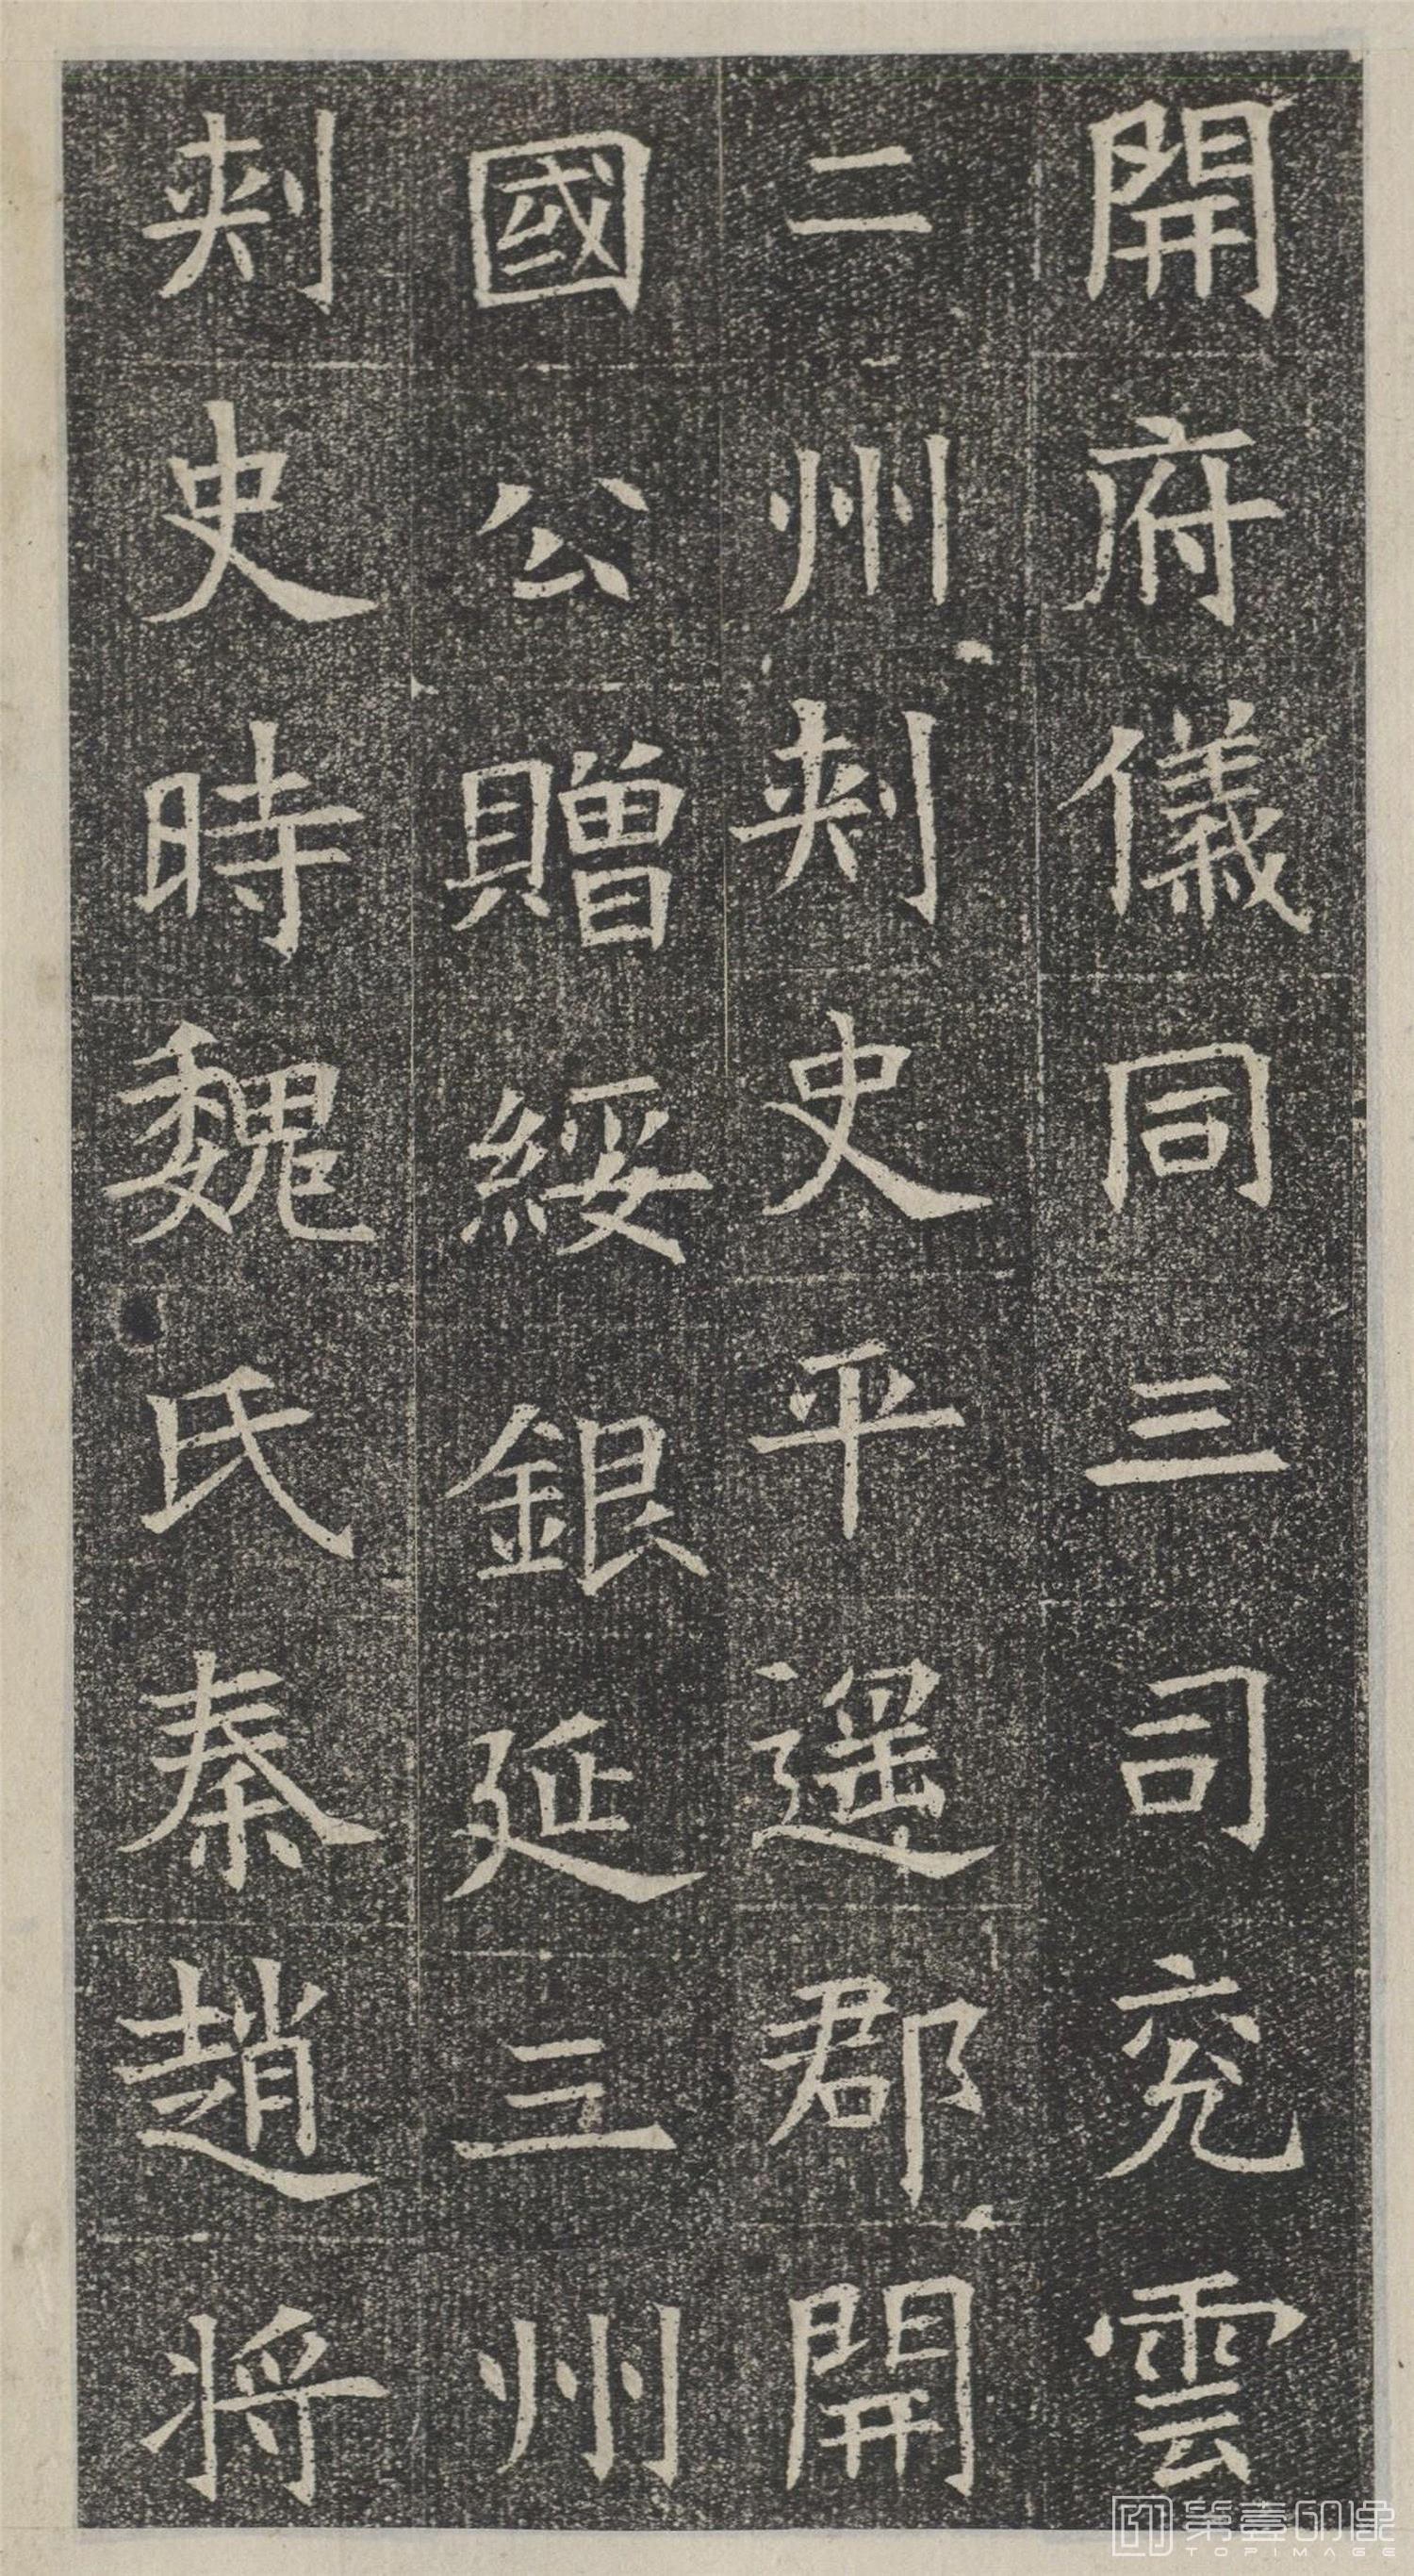 開府儀同三司兖雲
二州刺史平遥郡開
國公贈綏銀延三州
刺史時魏氏秦趙将
第壹印像
TOPIMAGE